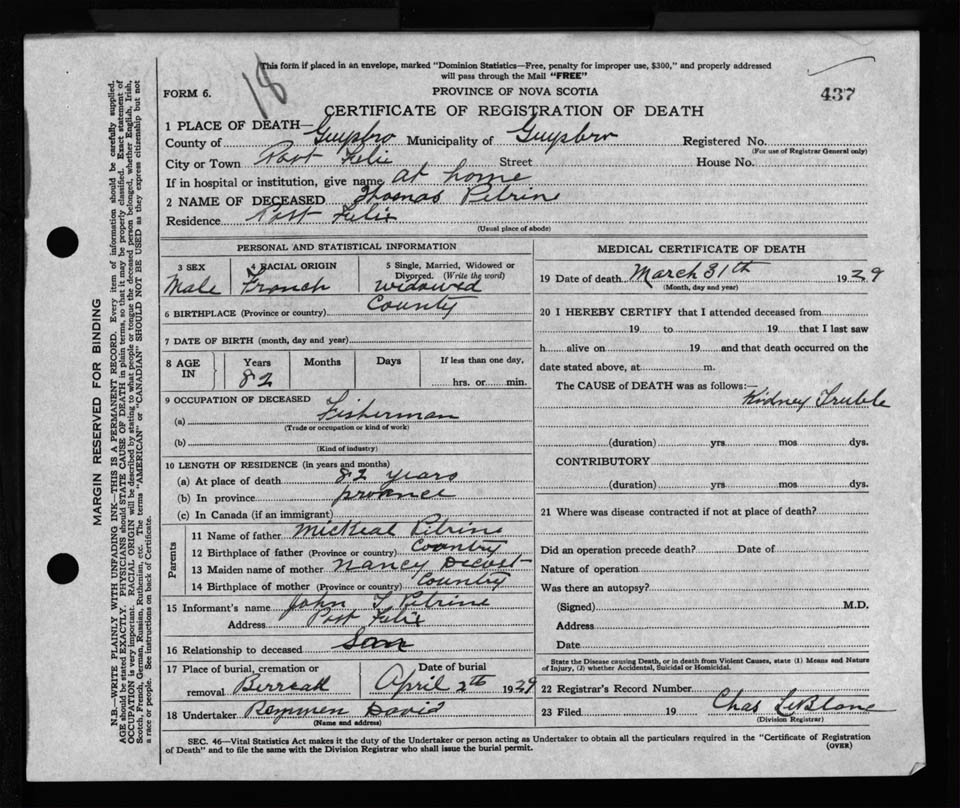 This form if placed in an envelope, marked "Dominion Statistics—Free, penalty for improper use, $300," and properly addressed
will pass through the Mail "FREE"
18
FORM 6.
PROVINCE OF NOVA SCOTIA
437
CERTIFICATE OF REGISTRATION OF DEATH
1 PLACE OF DEATH—
County of Guysbro Municipality of Guysbro Registered No.
(For use of Registrar General only)
City or Town Port Felix Street House No.
If in hospital or institution, give name at home
2 NAME OF DECEASED Thomas Petrine
Residence Port Felix
(Usual place of abode)
PERSONAL AND STATISTICAL INFORMATION
3 SEX 4 RACIAL ORIGIN 5 Single, Married, Widowed or Divorced. (Write the word)
Male French widowed
6 BIRTHPLACE (Province or country) County
7 DATE OF BIRTH (month, day and year)
8 AGE IN Years Months Days If less than one day,
82 hrs. or min.
9 OCCUPATION OF DECEASED
(a) Fisherman
(Trade or occupation or kind of work)
(b)
(Kind of industry)
10 LENGTH OF RESIDENCE (in years and months)
(a) At place of death 82 years
(b) In province province
(c) In Canada (if an immigrant)
Parents
11 Name of father Mickeal Petrine
12 Birthplace of father (Province or country) Country
13 Maiden name of mother Nancy
14 Birthplace of mother (Province or country) Country
15 Informant's name John T Petrine
Address Port Felix
16 Relationship to deceased Son
17 Place of burial, cremation or Date of burial
removal April 2th 1929
18 Undertaker David
(Name and address)
MEDICAL CERTIFICATE OF DEATH
19 Date of death March 31th 1929
(Month, day and year)
20 I HEREBY CERTIFY that I attended deceased from
19 to 19 that I last saw
h alive on 19 and that death occurred on the
date stated above, at m.
The CAUSE of DEATH was as follows:—
Kidney Truble
(duration) yrs mos dys.
CONTRIBUTORY
(duration) yrs mos dys.
21 Where was disease contracted if not at place of death?
Did an operation precede death? Date of
Nature of operation
Was there an autopsy?
(Signed) M.D.
Address
Date
State the Disease causing Death, or in death from Violent Causes, state (1) Means and Nature
of Injury, (2) whether Accidental, Suicidal or Homicidal.
22 Registrar's Record Number
23 Filed 19 Chas LeBlanc
(Division Registrar)
SEC. 46—Vital Statistics Act makes it the duty of the Undertaker or person acting as Undertaker to obtain all the particulars required in the "Certificate of Registration
of Death" and to file the same with the Division Registrar who shall issue the burial permit.
(OVER)
MARGIN RESERVED FOR BINDING
N.B.—WRITE PLAINLY WITH UNFADING INK—THIS IS A PERMANENT RECORD. Every item of information should be carefully supplied.
AGE should be stated EXACTLY. PHYSICIANS should STATE CAUSE OF DEATH in plain terms, so that it may be properly classified. Exact statement of
OCCUPATION is very important. RACIAL ORIGIN will be described by stating to what people or tongue the deceased person belonged, whether English, Irish,
Scotch, French, German, Russian, Ruthenian, etc. The terms "AMERICAN" or "CANADIAN" SHOULD NOT BE USED as they express citizenship but not
a race or people. See instructions on back of Certificate.